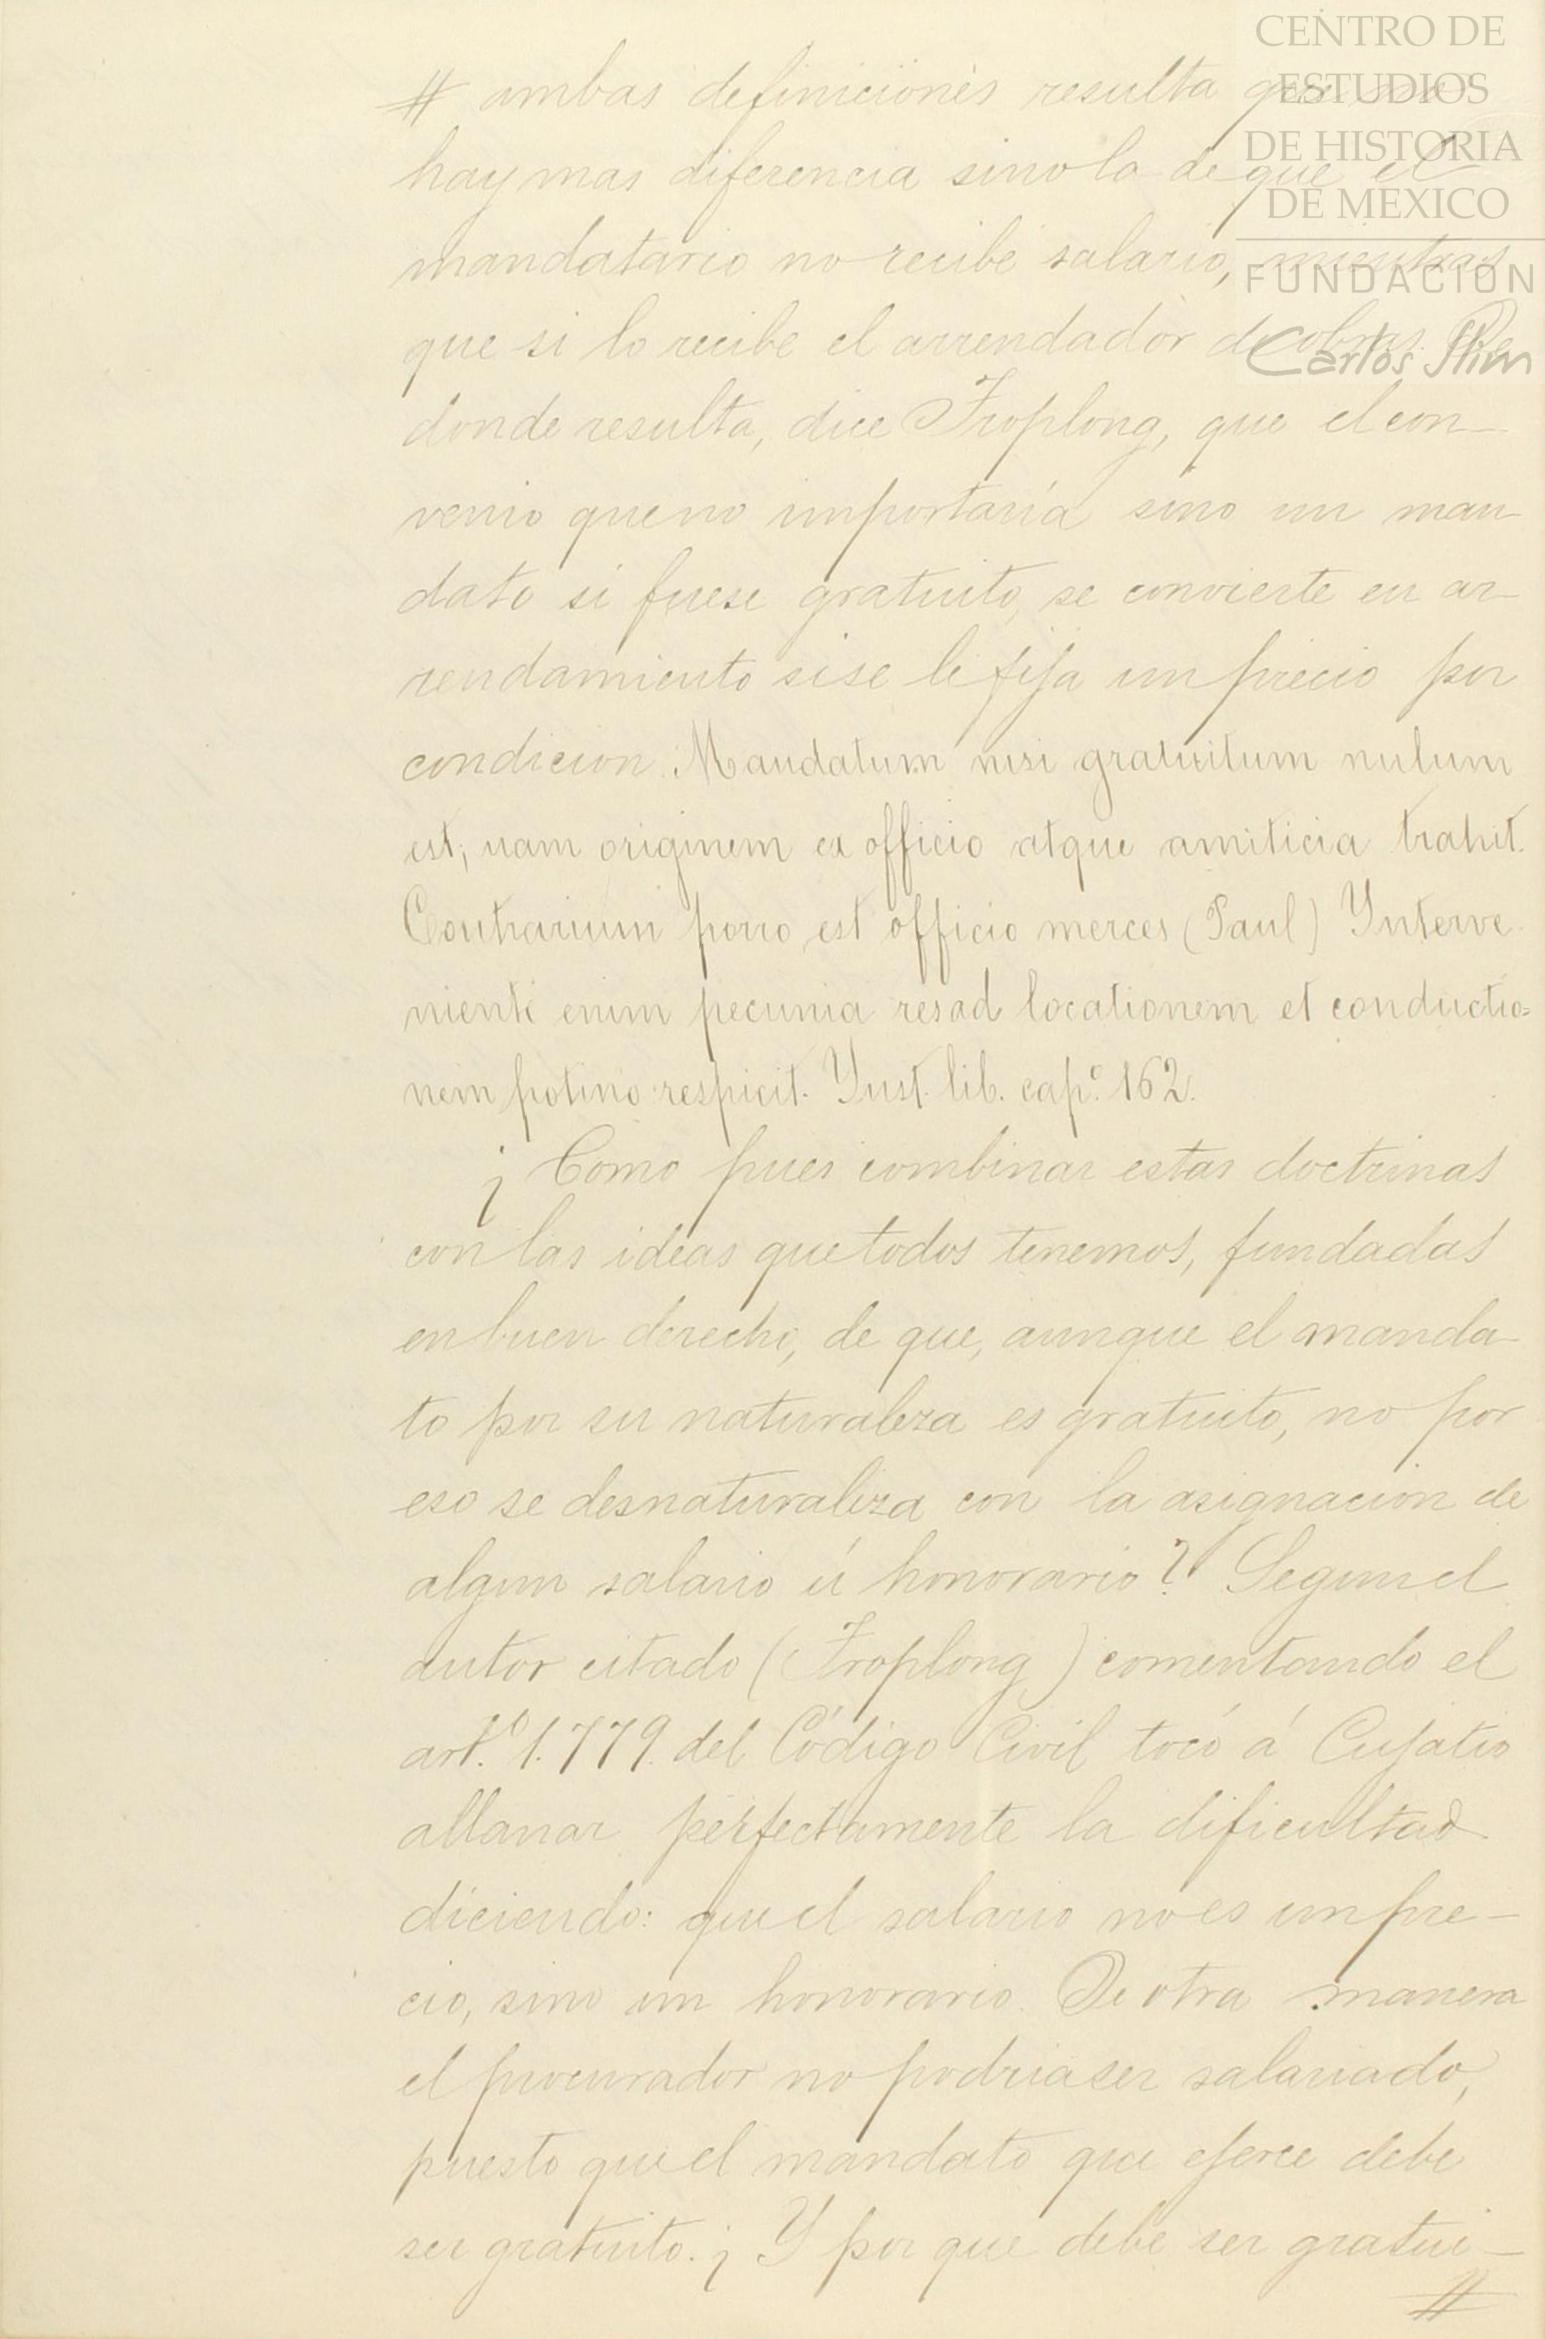 CENTRO DE
ESTUDIOS
DE HISTORIA
DE MEXICO
FUNDACIÓN
Carlos Slim
# ambas definiciones resulta que no
hay mas diferencia sino la de que el
mandatario no recibe salario, mientras
que si lo recibe el arrendador de obras. De
donde resulta, dice Troplong, que el con-
venio que no importaría sino un man
dato si fuese gratuito, se convierte en ar-
rendamiento si se le fija un precio por
condicion. Mandatum nisi gratuitum nulum
est, nam originem ex officio atque amiticia trahit.
Contrarium porro est officio merces (Paul) Interve-
niente enim pecunia res ad locationem et conductio=
nem potino respicit. Inst. lib. cap.o 162.
¿ Como pues combinar estas doctrinas
con las ideas que todos tenemos, fundadas
en buen derecho, de que, aunque el manda-
to por su naturaleza es gratuito, no por
eso se desnaturaliza con la asignacion de
algun salario ú honorario? Segun el
autor citado (Troplong) comentando el
art.o 1.779. del Código Civil tocó á Cujatio
allanar perfectamente la dificultad
diciendo: que el salario no es un pre-
cio, sino un honorario. De otra manera
el procurador no podria ser salariado,
puesto que el mandato que ejerce debe
ser gratuito. ¿ Y por que debe ser gratui-
#